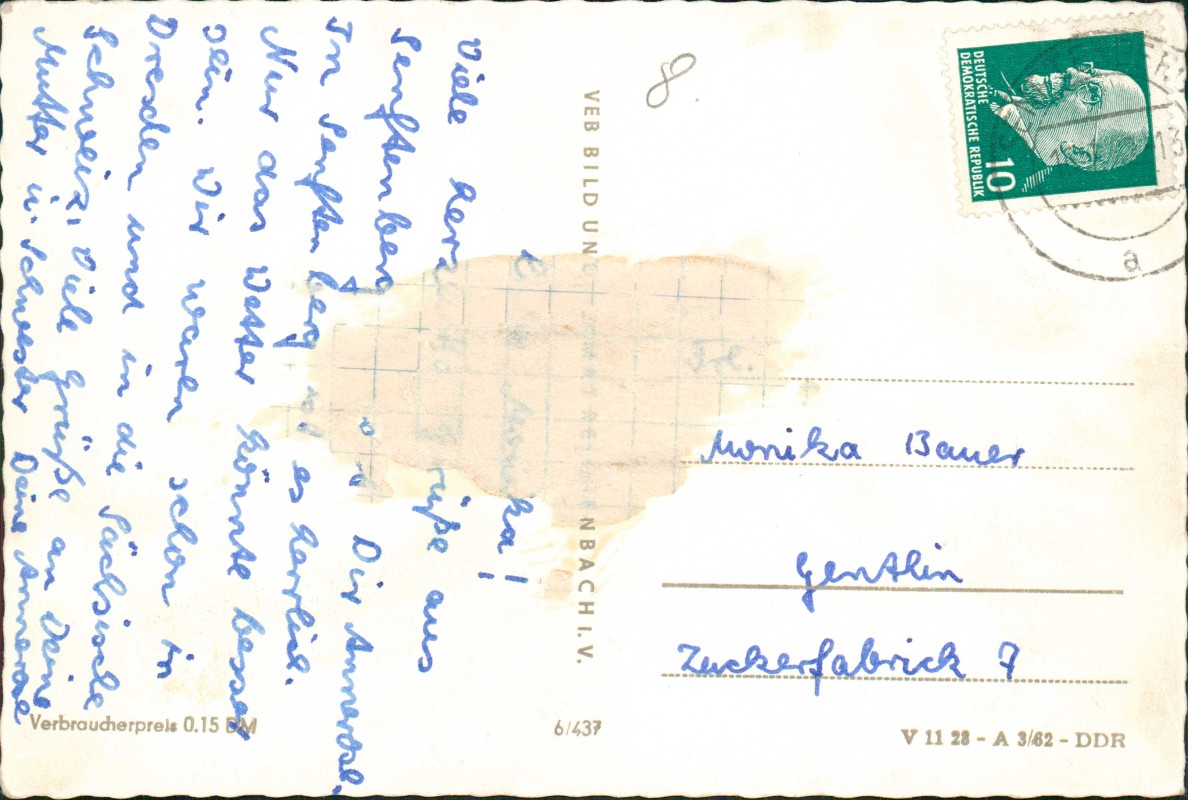 Liebe Monika!
Viele herzliche Grüße aus
Senftenberg
sendet Dir Annerose.
In Senftenberg ist es herrlich.
Nur das Wetter könnte besser
sein. Wir waren schon in
Dresden und in die Sächsische
Schweiz. Viele Grüße an Deine
Mutter u. Schwester Deine Annerose
8.
VEB BILD UND HEIMAT REICHENBACH I. V.
DEUTSCHE
DEMOKRATISCHE REPUBLIK
10
a
Frl.
Monika Bauer
Genthin
Zuckerfabrick 7
Verbraucherpreis 0.15 DM
6/437
V 11 28 - A 3/62 - DDR